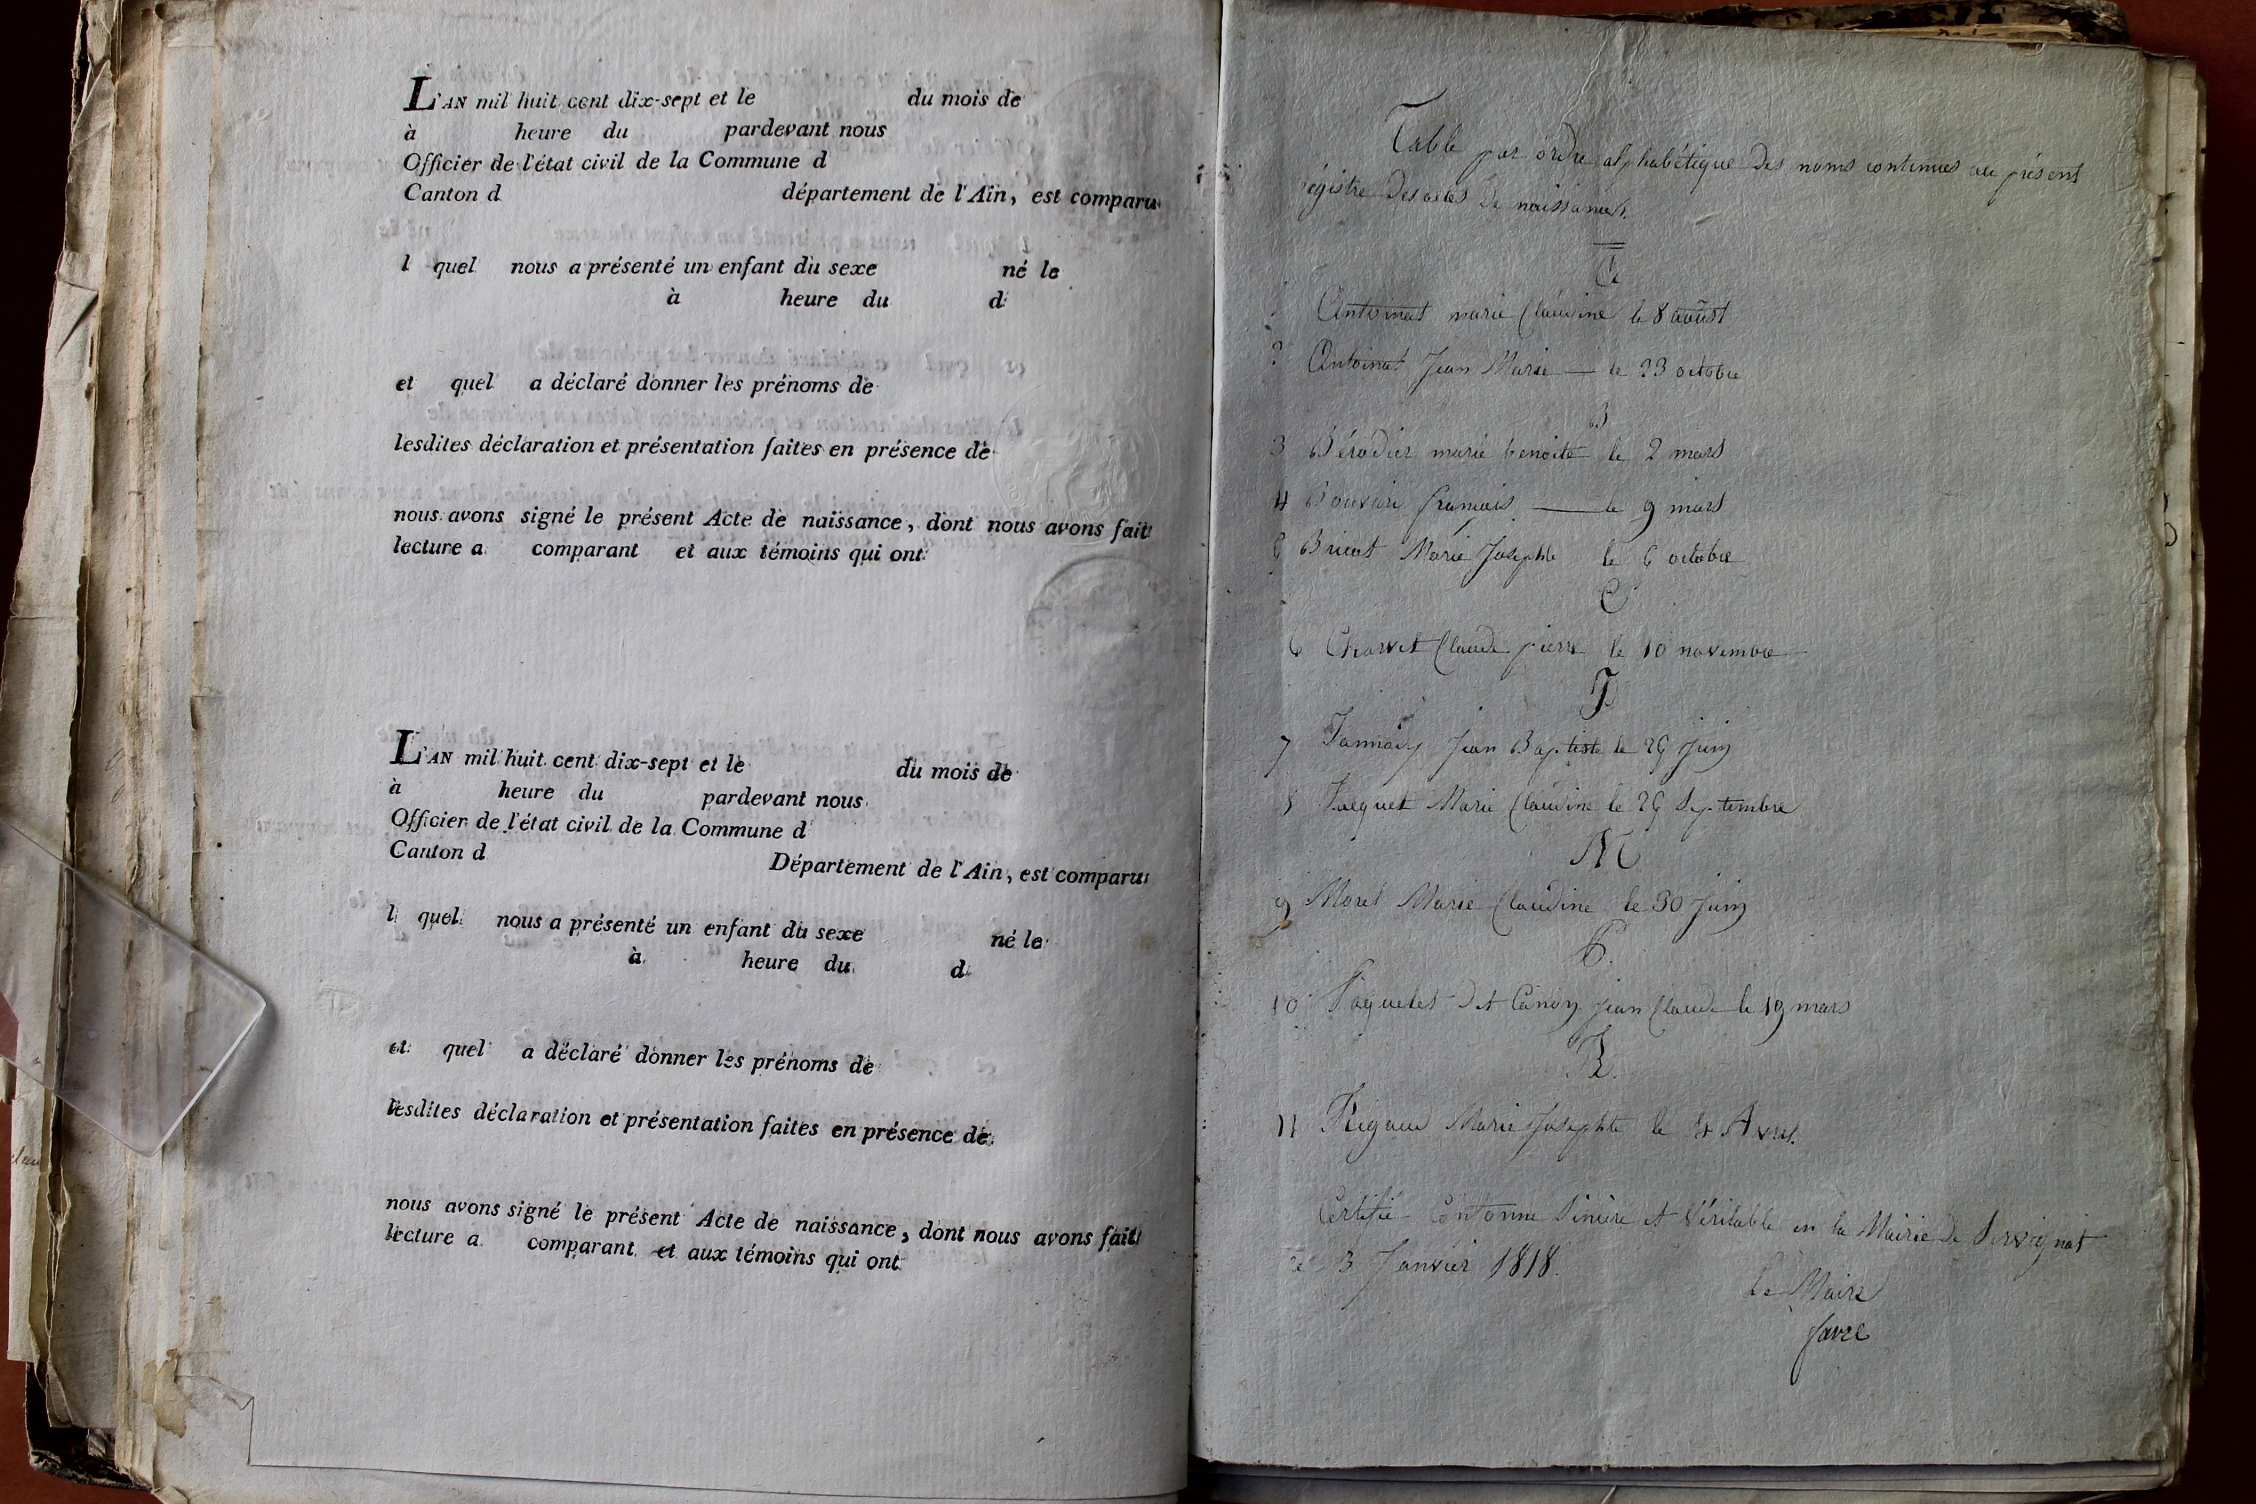 L'AN mil huit cent dix-sept et le du mois de
à heure du pardevant nous
Officier de l'état civil de la Commune d
Canton d département de l'Ain, est comparu
l quel nous a présenté un enfant du sexe né le
à heure du d
et quel a déclaré donner les prénoms de
lesdites déclaration et présentation faites en présence de
nous avons signé le présent Acte de naissance, dont nous avons fait
lecture a comparant et aux témoins qui ont
L'AN mil huit cent dix-sept et le du mois de
à heure du pardevant nous
Officier de l'état civil de la Commune d
Canton d Département de l'Ain, est comparu
l quel nous a présenté un enfant du sexe né le
à heure du d
et quel a déclaré donner les prénoms de
lesdites déclaration et présentation faites en présence de
nous avons signé le présent Acte de naissance, dont nous avons fait
lecture a comparant et aux témoins qui ont
Table par ordre alphabétique des noms contenues au présent
régistre des actes de naissances.
A
Antoinat marie Claudine le 8 août
2 Antoinat Jean Marie — le 23 octobre
B
3 Bérodier marie benoite le 2 mars
4 Bouvier francois — le 9 mars
5 Marie Josephte le 6 octobre
C
6 Charvet Claude pierre le 10 novembre
J
7 Jean Baptiste le 29 Juin
8 Jacquet Marie Claudine le 29 Septembre
M
9 Morel Marie Claudine le 30 Juin
P.
10 dit Jean Claude le 19 mars
R
11 Rigaud Marie Josephte le 4 Avril.
Certifié Conforme Sincère et Véritable en la Mairie de Servignat
ce 3 Janvier 1818.
Le Maire
favre